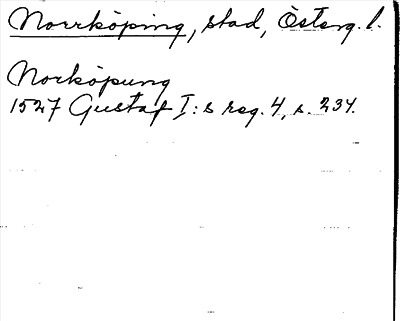 Norrköping, stad, Österg. l.
Norköpung
1527 Gustaf I:s reg. 4, s. 234.